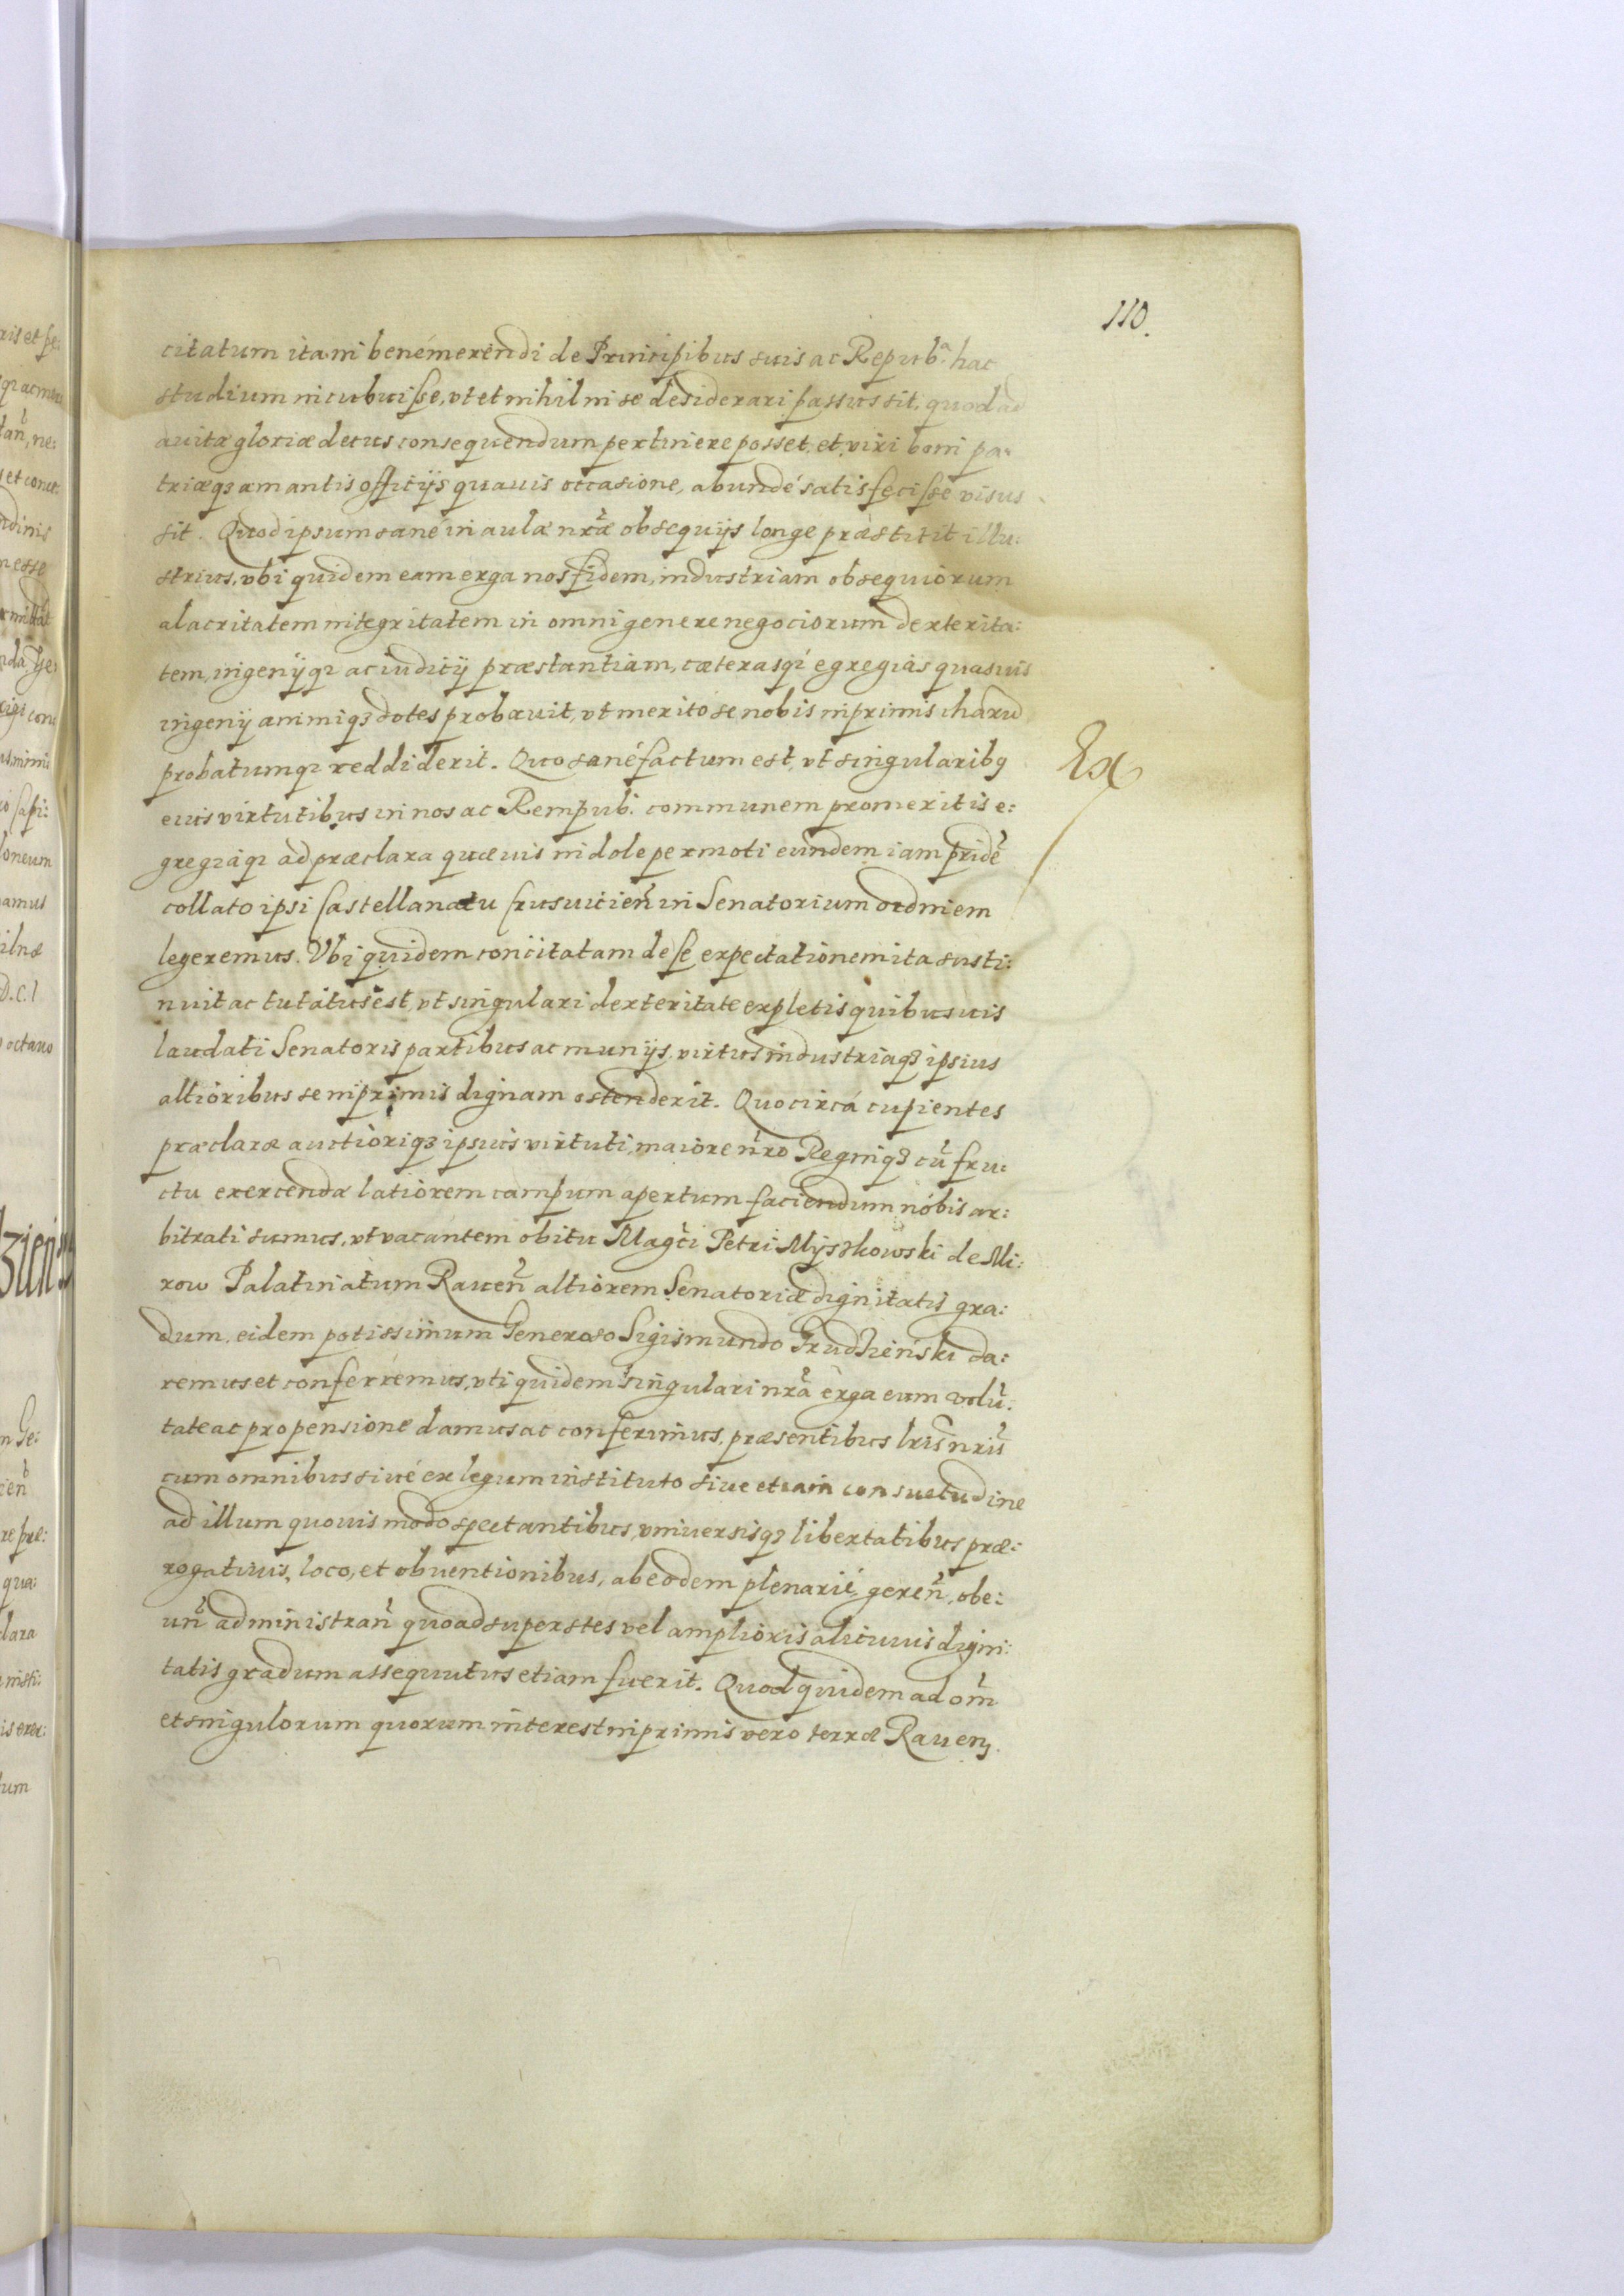 110.
citatum ita in benémerendi de Principibus suis ac Repub.ᵃ hac
studium incubuisse, vt et nihil in se desiderari passus sit, quod ad
auitæ gloriæ decus consequendum pertinere posset, et viri boni pa:
triæq3 amantis officijs quauis occasione, abundé satisfecisse visus
sit. Quod ipsum sané in aulæ nr̃æ obsequijs longe præstitit illu:
strius, vbi quidem eam erga nos fidem, industriam obsequiorum
alacritatem integritatem in omni genere negociorum dexterita:
tem, ingenijq3 ac iudicij præstantiam, cæterasq3 egregias quasuis
ingenij animiq3 dotes probauit, vt merito se nobis inprimis charũ
probatumq3 reddiderit. Quo sané factum est, vt singularibꝯ
Ex
eius virtutibus in nos ac Rempub. communem promeritis e:
gregiaq3 ad præclara quæuis indole permoti eundem iam pridẽ
collato ipsi Castellanatu Crusuicien̉ in Senatorium ordinem
legeremus. Vbi quidem concitatam de se expectationem ita susti:
nuit ac tutatus est, vt singulari dexteritate expletis quibusuis
laudati Senatoris partibus ac munijs, virtus industriaq3 ipsius
altioribus se inprimis dignam ostenderit. Quocircá cupientes
præclaræ auctioriq3 ipsius virtuti, maiore nr̃o Regniq3 cũ fru:
ctu exercendæ latiorem campum apertum faciendum nobis ar:
bitrati sumus, vt vacantem obitu Magc̃i Petri Myszkowski de Mi:
row Palatinatum Rauen̉ altiorem Senatoriæ dignitatis gra:
dum, eidem potissimum Generoso Sigismundo Grudzieński da:
remus et conferremus, vti quidem singulari nr̃a erga eum volũ:
tate ac propensione damus ac conferimus, præsentibus lr̃is nr̃is
cum omnibus siué ex legum instituto siue etiam consuetudine
ad illum quouis modo spectantibus, vniuersisq3 libertatibus præ:
rogatiuis, loco, et obuentionibus, ab eodem plenarié geren̉, obe:
un̉ administran̉ quoad superstes vel amplioris alicuuis digni:
tatis gradum assequutus etiam fuerit. Quod quidem ad om̃
et singulorum quorum interest inprimis vero terræ Rauen̉.